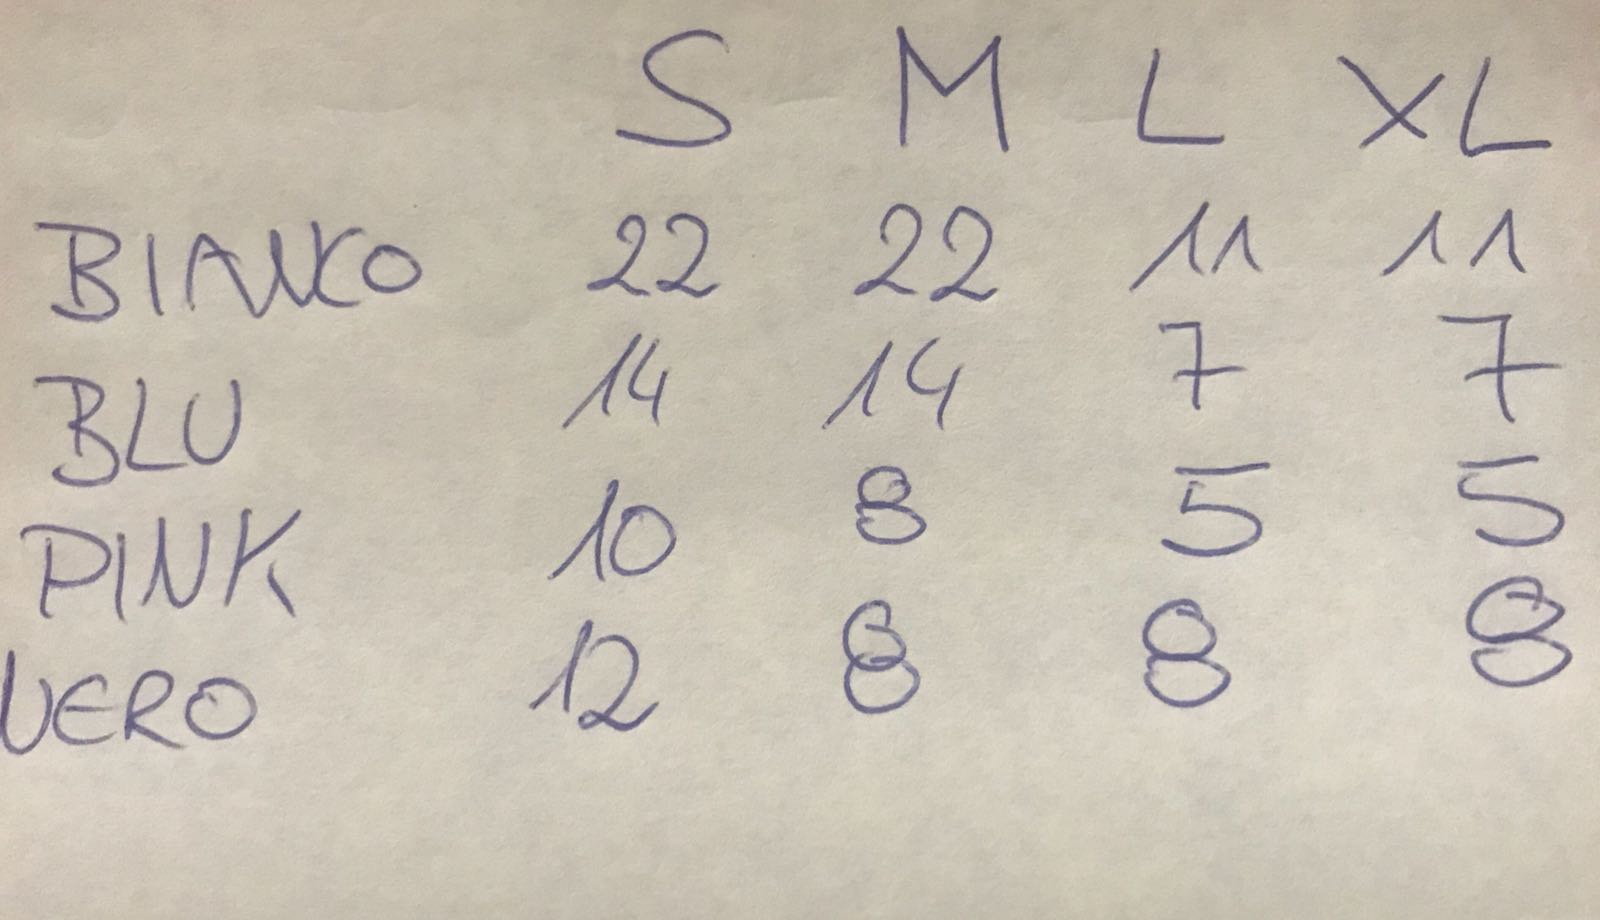 S M L XL
BIANCO 22 22 11 11
BLU 14 14 7 7
PINK 10 8 5 5
NERO 12 8 8 8